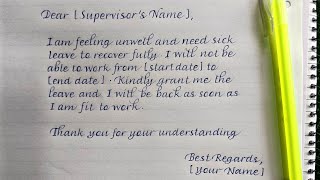 Dear [Supervisor's Name],
I am feeling unwell and need sick
leave to recover fully. I will not be
able to work from [start date] to
[end date]. Kindly grant me the
leave and I will be back as soon as
I am fit to work.
Thank you for your understanding
Best Regards,
[Your Name]